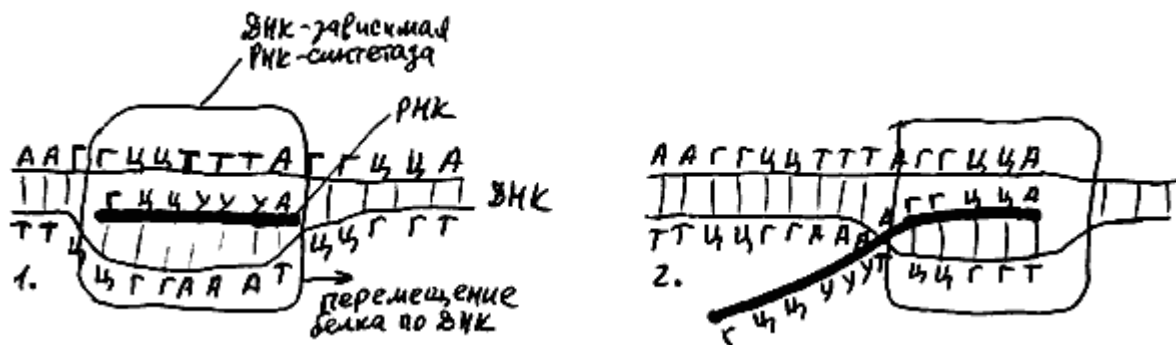 ДНК-зависимая
РНК-синтетаза
РНК
А А Г Г Ц Ц Т Т Т А Г Г Ц Ц А
Г Ц Ц У У У А
ДНК
Т Т Ц Ц Г Г А А А Т Ц Ц Г Г Т
1.
перемещение
белка по ДНК
А А Г Г Ц Ц Т Т Т А Г Г Ц Ц А
А Г Г Ц Ц А
Т Т Ц Ц Г Г А А А Т Ц Ц Г Г Т
2.
Г Ц Ц У У У